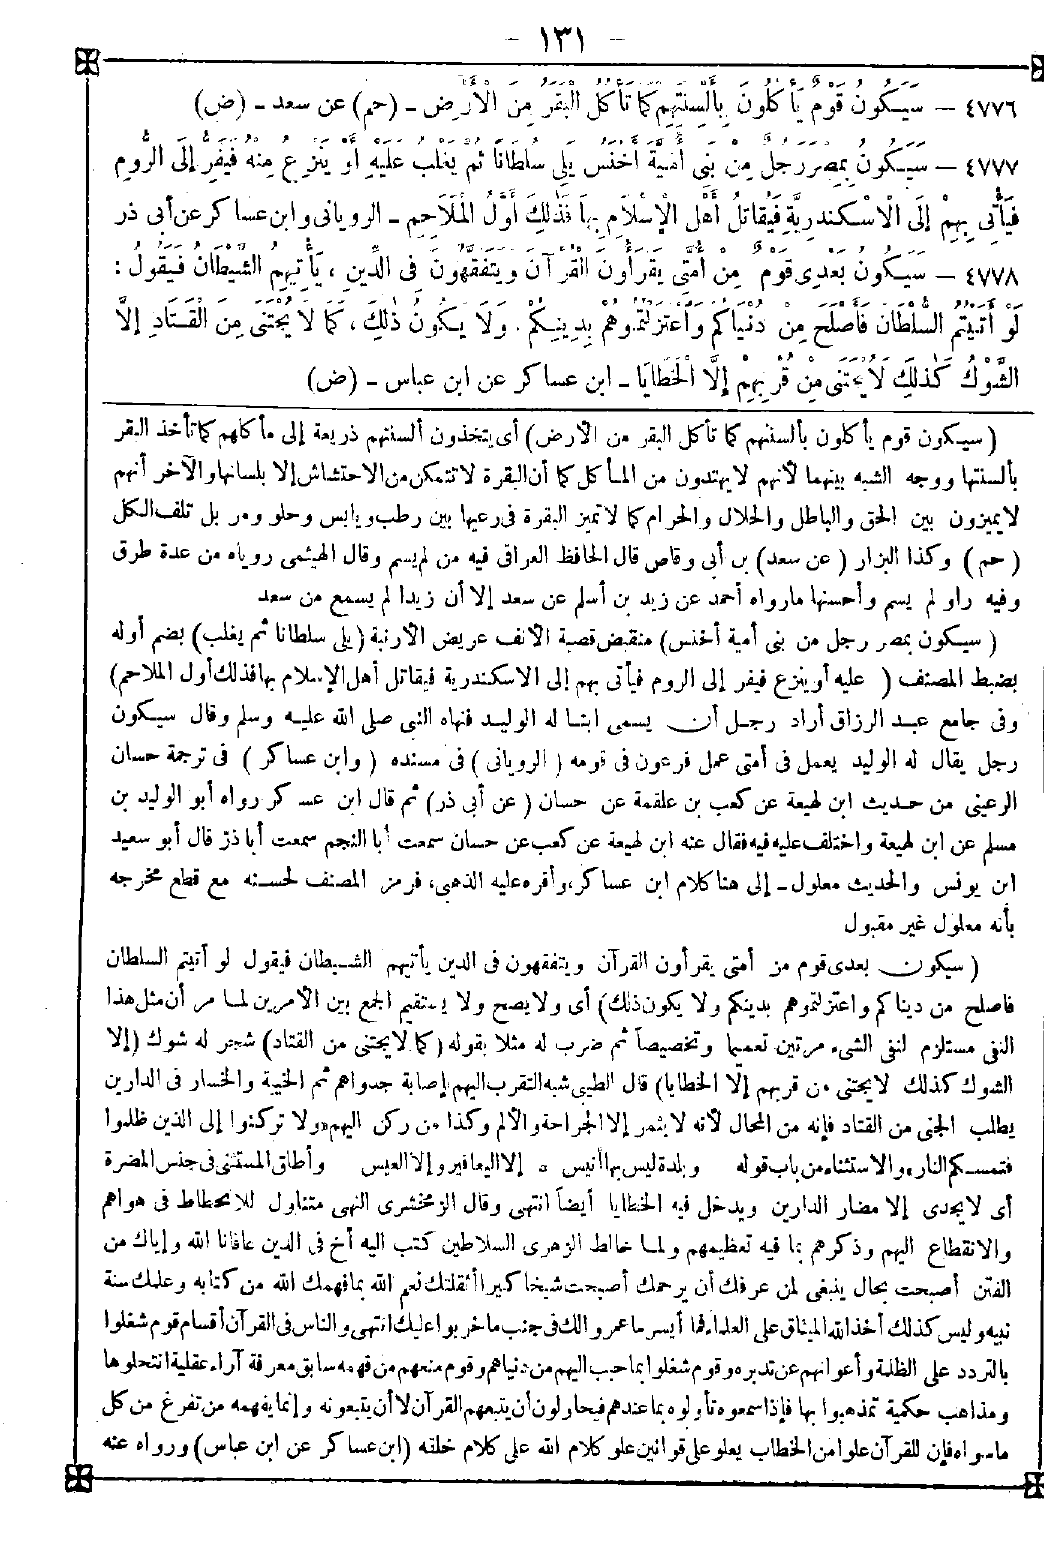 - ١٣١ -
٤٧٧٦ – سَيَكُونُ قَوْمٌ يَأْكُلُونَ بِأَلْسِنَتِهِمْ كَمَا تَأْكُلُ الْبَقَرُ مِنَ الْأَرْضِ - (حم) عن سعد - (ض)
٤٧٧٧ – سَيَكُونُ بِمِصْرَ رَجُلٌ مِنْ بَنِي أُمَيَّةَ أَخْنَسُ يَلِي سُلْطَانًا ثُمَّ يَغْلِبُ عَلَيْهِ أَوْ يَنْزِعُ مِنْهُ فَيَفِرُّ إِلَى الرُّومِ
فَيَأْتِي بِهِمْ إِلَى الْاسْكَنْدَرِيَّةِ فَيُقَاتِلُ أَهْلَ الْإِسْلَامِ بِهَا فَذَلِكَ أَوَّلُ الْمَلَاحِمِ - الرويانى وابن عساكر عن أبى ذر
٤٧٧٨ – سَيَكُونُ بَعْدِى قَوْمٌ مِنْ أُمَّتِى يَقْرَأُونَ الْقُرْآنَ وَيَتَفَقَّهُونَ فِى الدِّينِ ، يَأْتِيهِمُ الشَّيْطَانُ فَيَقُولُ :
لَوْ أَتَيْتُمُ السُّلْطَانَ فَأَصْلَحَ مِنْ دُنْيَاكُمْ وَاعْتَزَلْتُمُوهُمْ بِدِينِكُمْ . وَلَا يَكُونُ ذٰلِكَ ، كَمَا لَا يُجْتَنَى مِنَ الْقَتَادِ إِلَّا
الشَّوْكُ كَذٰلِكَ لَا يُجْتَنَى مِنْ قُرْبِهِمْ إِلَّا الْخَطَايَا - ابن عساكر عن ابن عباس - (ض)
(سيكون قوم يأكلون بألسنتهم كما تأكل البقر من الأرض) أى يتخذون ألسنتهم ذريعة إلى مأكلهم كما تأخذ البقر
بألسنتها ووجه الشبه بينهما لأنهم لا يهتدون من المأكل كما أن البقرة لا تتمكن من الاحتشاش إلا بلسانها والآخر أنهم
لا يميزون بين الحق والباطل والحلال والحرام كما لا تميز البقرة فى رعيها بين رطب ويابس وحلو ومر بل تلف الكل
(حم) وكذا البزار (عن سعد) بن أبى وقاص قال الحافظ العراقى فيه من لم يسم وقال الهيثمى رواه من عدة طرق
وفيه راو لم يسم وأحسنها ما رواه أحمد عن زيد بن أسلم عن سعد إلا أن زيدا لم يسمع من سعد
(سيكون بمصر رجل من بنى أمية أخنس) منقبض قصبة الأنف عريض الأرنبة (يلى سلطانا ثم يغلب) بضم أوله
بضبط المصنف (عليه أو ينزع فيفر إلى الروم فيأتى بهم إلى الاسكندرية فيقاتل أهل الإسلام بها فذلك أول الملاحم)
وفى جامع عبد الرزاق أراد رجل أن يسمى ابنا له الوليد فنهاه النبى صلى الله عليه وسلم وقال سيكون
رجل يقال له الوليد يعمل فى أمتى عمل فرعون فى قومه (الرويانى) فى مسنده (وابن عساكر) فى ترجمة حسان
الرعينى من حديث ابن لهيعة عن كعب بن علقمة عن حسان (عن أبى ذر) ثم قال ابن عساكر رواه أبو الوليد بن
مسلم عن ابن لهيعة واختلف عليه فيه فقال عنه ابن لهيعة عن كعب عن حسان سمعت أبا النجم سمعت أبا ذر قال أبو سعيد
ابن يونس والحديث معلول - إلى هنا كلام ابن عساكر ، وأقره عليه الذهبى ، فرمز المصنف لحسنه مع قطع مخرجه
بأنه معلول غير مقبول
(سيكون بعدى قوم من أمتى يقرأون القرآن ويتفقهون فى الدين يأتيهم الشيطان فيقول لو أتيتم السلطان
فاصلح من دنياكم واعتزلتموهم بدينكم ولا يكون ذلك) أى ولا يصح ولا يستقيم الجمع بين الأمرين لما مر أن مثل هذا
النفى مستلزم لنفى الشىء مرتين تعميما وتخصيصاً ثم ضرب له مثلا بقوله (كما لا يجتنى من القتاد) شجر له شوك (إلا
الشوك كذلك لا يجتنى من قربهم إلا الخطايا) قال الطيبى شبه التقرب اليهم بإصابة جدواهم ثم الخيبة والخسار فى الدارين
بطلب الجنى من القتاد فإنه من المحال لأنه لا يثمر إلا الجراحة والألم وكذا من ركن اليهم «ولا تركنوا إلى الذين ظلموا
فتمسكم النار» والاستثناء من باب قوله وبلدة ليس بها أنيس * إلا اليعافير وإلا العيس وأطلق المستثنى فى جنس المضرة
أى لا يجدى إلا مضار الدارين ويدخل فيه الخطايا أيضاً انتهى وقال الزمخشرى النهى متناول للانحطاط فى هواهم
والانقطاع اليهم وذكرهم بما فيه تعظيمهم ولما خالط الزهرى السلاطين كتب اليه أخ فى الدين عافانا الله وإياك من
الفتن أصبحت بحال ينبغى لمن عرفك أن يرحمك أصبحت شيخا كبيرا أثقلتك نعم الله بما فهمك الله من كتابه وعلمك سنة
نبيه وليس كذلك أخذ الله الميثاق على العلماء فما أيسر ما عمروا لك فى جنب ما خربوا عليك انتهى والناس فى القرآن أقسام قوم شغلوا
بالتردد على الظلمة وأعوانهم عن تدبره وقوم شغلوا بما حبب اليهم من دنياهم وقوم منعهم من فهمه سابق معرفة آراء عقلية انتحلوها
ومذاهب حكمية تمذهبوا بها فإذا سمعوه تأولوه بما عندهم فيحاولون أن يتبعهم القرآن لا أن يتبعونه وإنما يفهمه من تفرغ من كل
ما سواه فإن للقرآن علوا من الخطاب يعلو على قوانين علو كلام الله على كلام خلقه (ابن عساكر عن ابن عباس) ورواه عنه